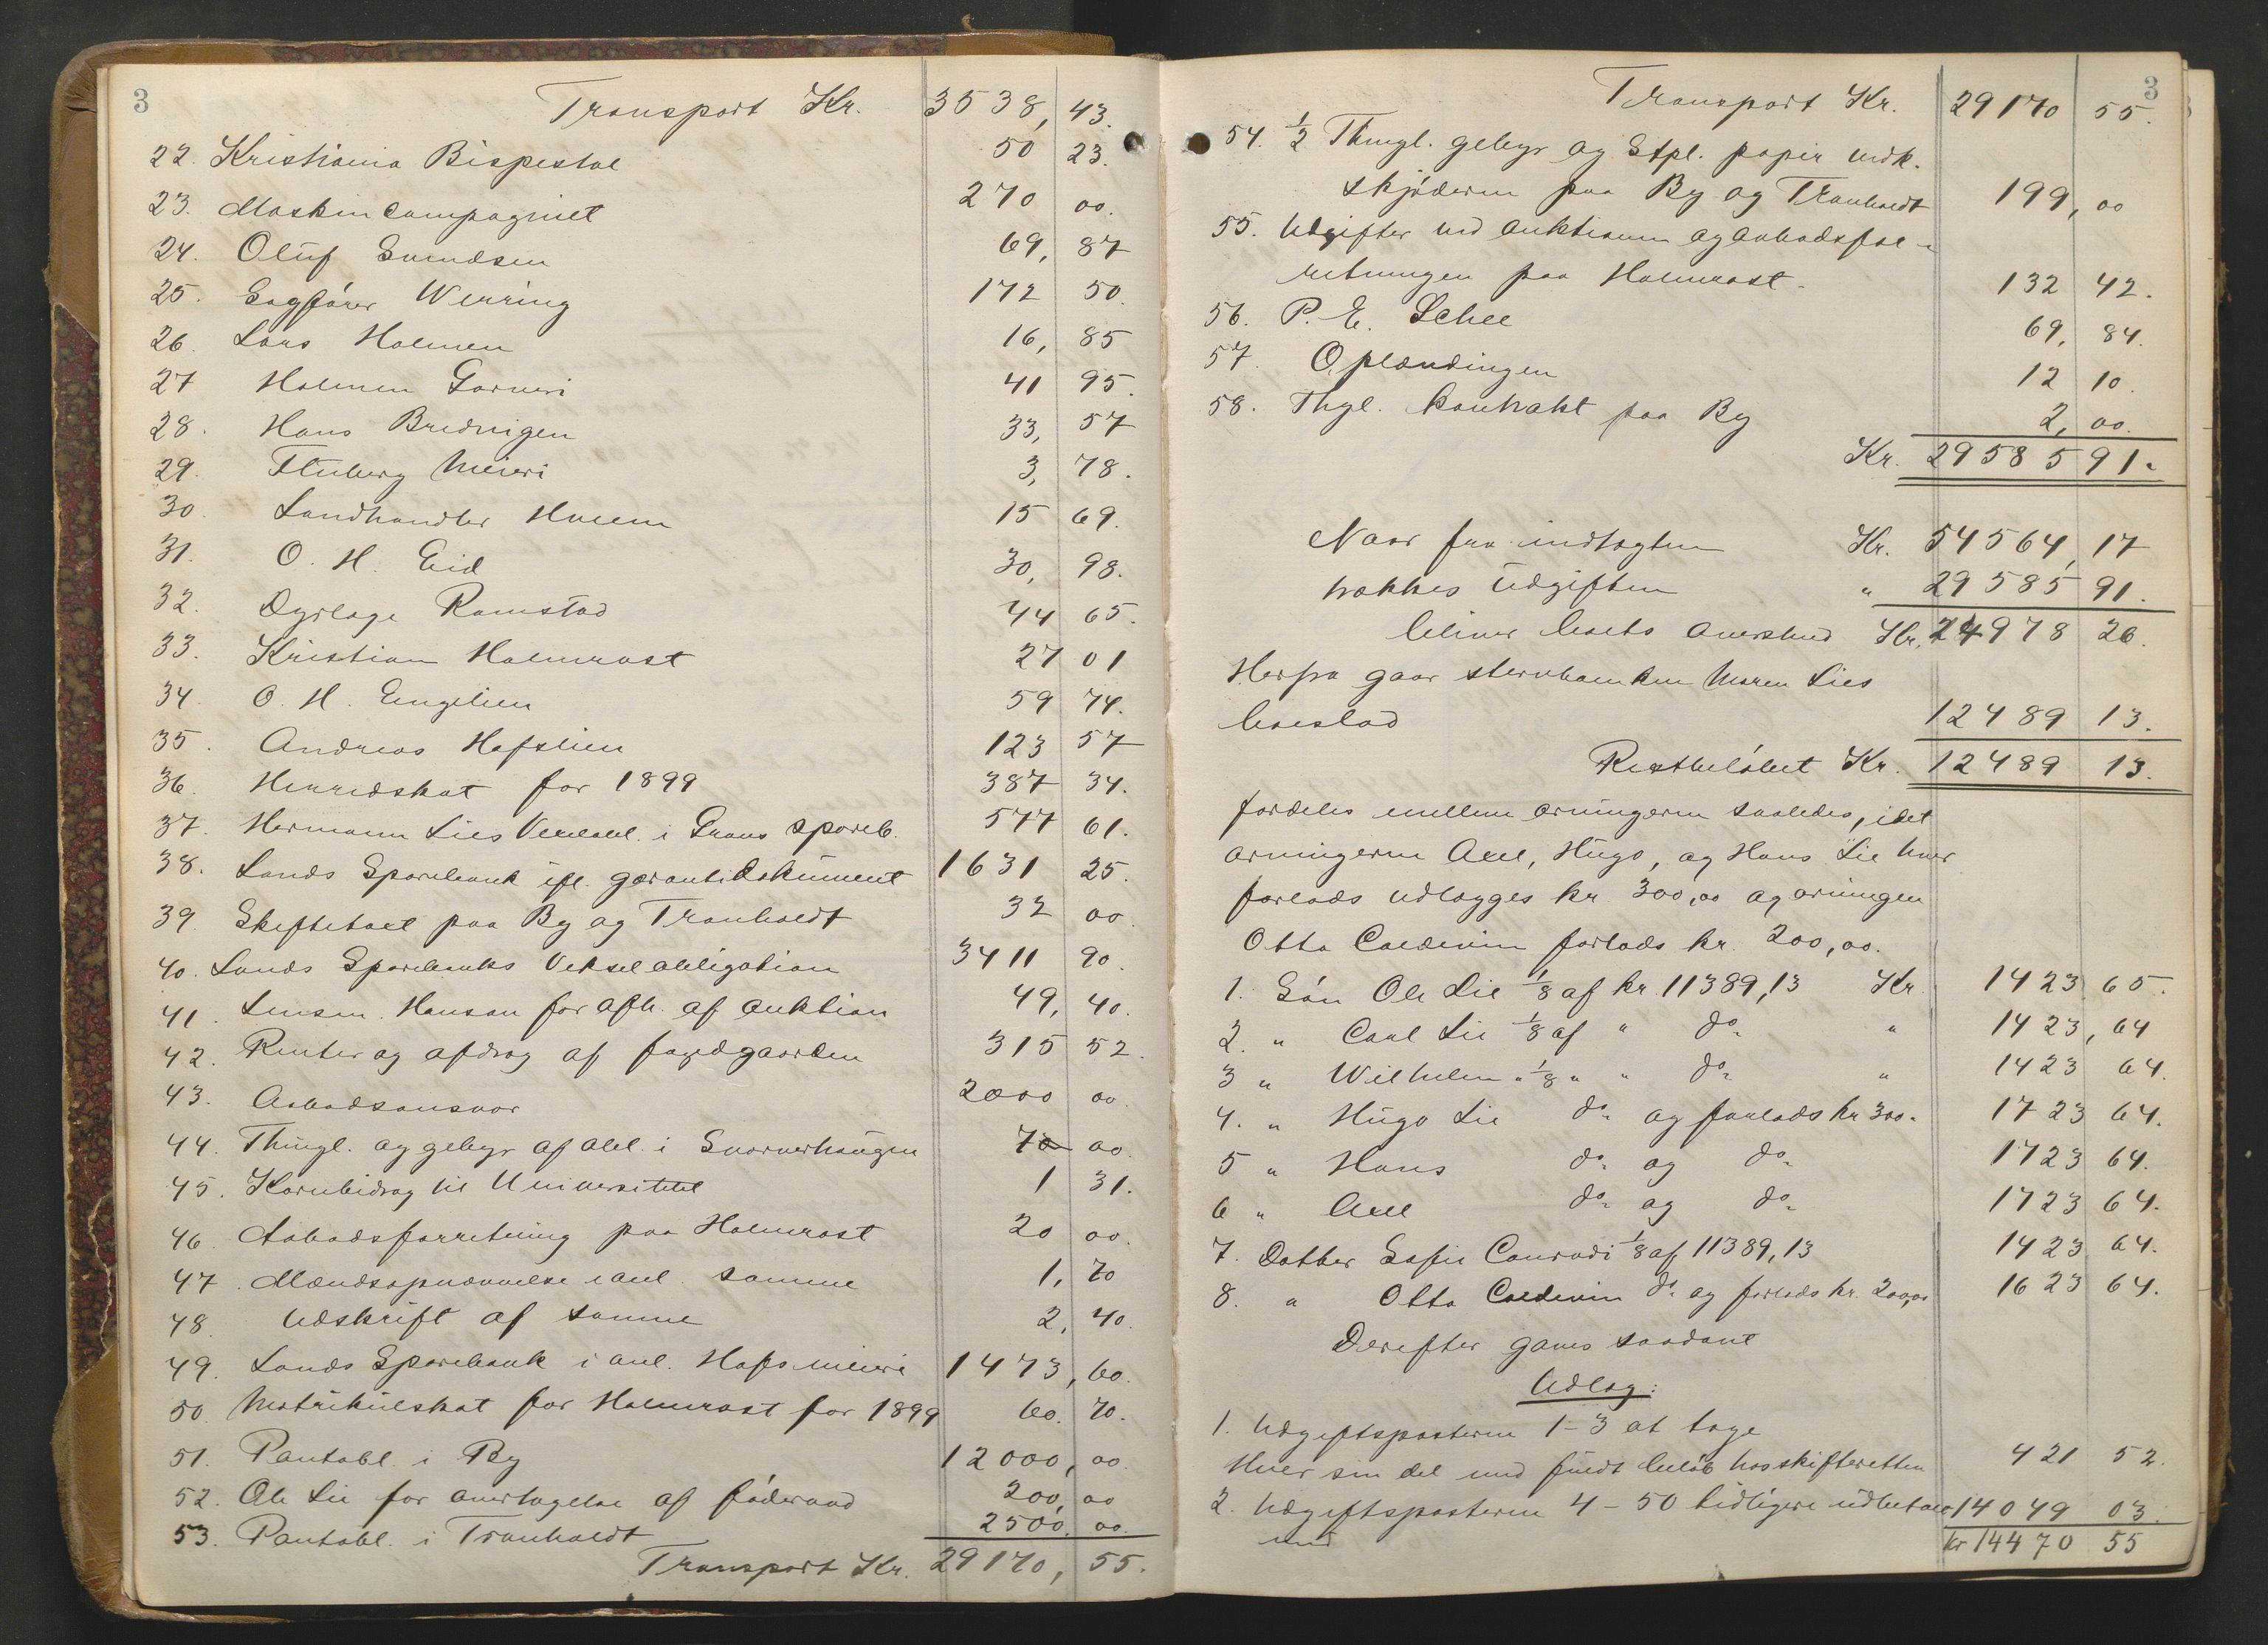 3
Transport Kr. 3538, 43.
22. Kristiania Bispestol 50 23.
23. Maskincompagniet 270 00.
24. Oluf Svendsen 69, 87
25. Sagfører Werring 172 50.
26. Lars Holmen 16, 85
27 Holmen Garveri 41 95.
28. Hans Bredvigen 33, 57
29. Fluberg Meieri 3, 78.
30. Landhandler 15 69.
31. O. H. Eid 30, 98.
32. Dyrlæge Ramstad 44 65.
33. Kristian Holmrast 27 01
34. O. H. Engelien 59 74.
35. Andreas Hofslien 123 57
36. Herredskat for 1899 387 34.
37. Hermann Lies Vexelobl. i Grans Spareb. 577 61.
38. Lands Sparebank ifl. garantidokument 1631 25.
39. Skiftetaxt paa By og Tronholdt 32 00
40. Lands Sparebanks Vekselobligation 3411 90.
41. Lensm. Hanson for afh. af auktion 49, 40.
42. Renter og afdrag af fogedgaarden 315 52.
43. Aabodsansvar 2000 00.
44. Thingl. og gebyr af obl. i Svarverhaugen 70 00.
45. Kornbidrag til Universitetet 1 31.
46. Aabodsforretning paa Holmrast 20 00.
47. Mændsopnævnelse i anl. samme 1, 70
48. Udskrift af samme 2, 40.
49. Lands Sparebank i anl. Hofs meieri 1473, 60.
50. Matrikulskat for Holmrast for 1899 60. 70.
51. Pantobl. i By 12000, 00.
52. Ole Lie for overtagelse af føderaad 200, 00
53. Pantobl. i Tronholdt 2500. 00.
Transport Kr. 29170, 55.
3
Transport Kr. 29170 55.
54. ½ Thingl. gebyr og Stpl. papir vedk.
skjøderne paa By og Tronholdt 199, 00
55. Udgifter ved auktionen og aabodsfor-
retningen paa Holmrast. 132 42.
56. P. E. Schee 69, 84.
57. Oplændingen 12 10.
58. Thgl. kontrakt paa By 2, 00.
Kr. 29585 91.
Naar fra indtægten Kr. 54564, 17
trækkes Udgiften " 29585 91.
bliver boets overskud Kr. 24978 26.
Herfra gaar stervboenken Maren Lies
boeslod 12489 13.
Restbeløbet Kr. 12489 13.
fordeles mellem arvingerne saaledes, idet
arvingerne Axel, Hugo, og Hans Lie hver
forlods udlægges kr. 300,00 og arvingen
Otta Coldevin forlods kr. 200,00.
1. Søn Ole Lie ⅛ af kr. 11389,13 Kr. 1423 65.
2. " Carl Lie ⅛ af " do. " 1423, 64
3 " Wilhelm " ⅛ " " do. " 1423 64.
4. " Hugo Lie do. og forlods kr 300. 1723 64.
5 " Hans do. og do. 1723 64.
6 " Axel do. og do. 1723 64.
7. Datter Sofie Conradi ⅛ af 11389,13 1423 64.
8. " Otta Coldevin do. og forlods kr. 200,00 1623 64.
Derefter gjøres saadant
Udlæg:
1. Udgiftsposterne 1-3 at tage
Hver sin del med fuldt beløb hos skifteretten 421 52.
2. Udgiftsposterne 4-50 tidligere udbetalt 14049 03.
med
kr 14470 55